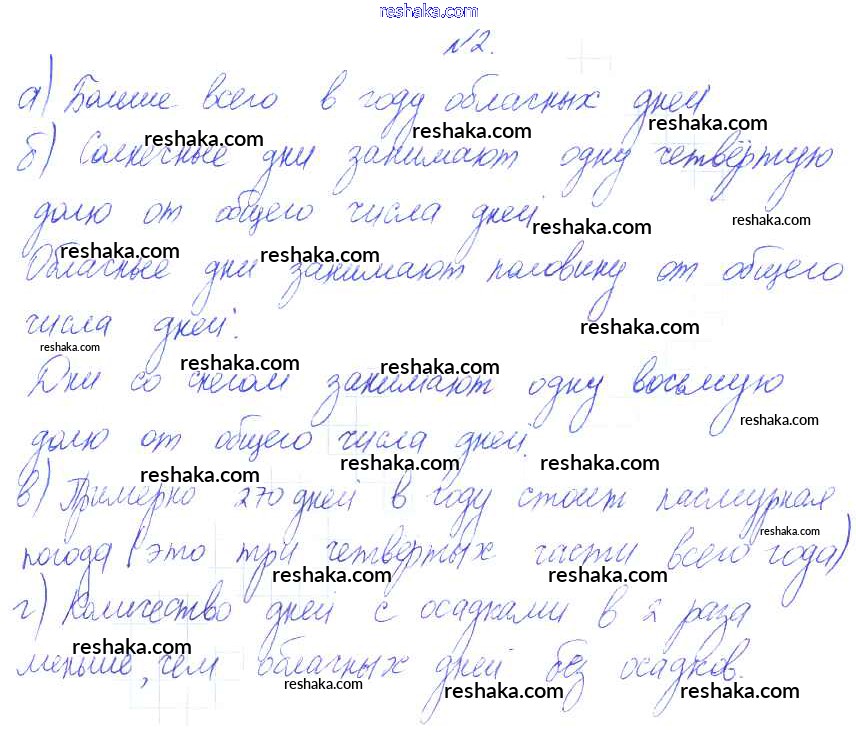 reshaka.com
№2.
а) Больше всего в году облачных дней
reshaka.com reshaka.com reshaka.com
б) Солнечные дни занимают одну четвёртую
долю от общего числа дней.
reshaka.com reshaka.com
reshaka.com reshaka.com
Облачные дни занимают половину от общего
числа дней.
reshaka.com
reshaka.com reshaka.com reshaka.com
Дни со снегом занимают одну восьмую
долю от общего числа дней.
reshaka.com
reshaka.com reshaka.com reshaka.com
в) Примерно 270 дней в году стоит пасмурная
погода (это три четвёртых части всего года)
reshaka.com
reshaka.com reshaka.com
г) Количество дней с осадками в 2 раза
меньше, чем облачных дней без осадков.
reshaka.com
reshaka.com reshaka.com reshaka.com